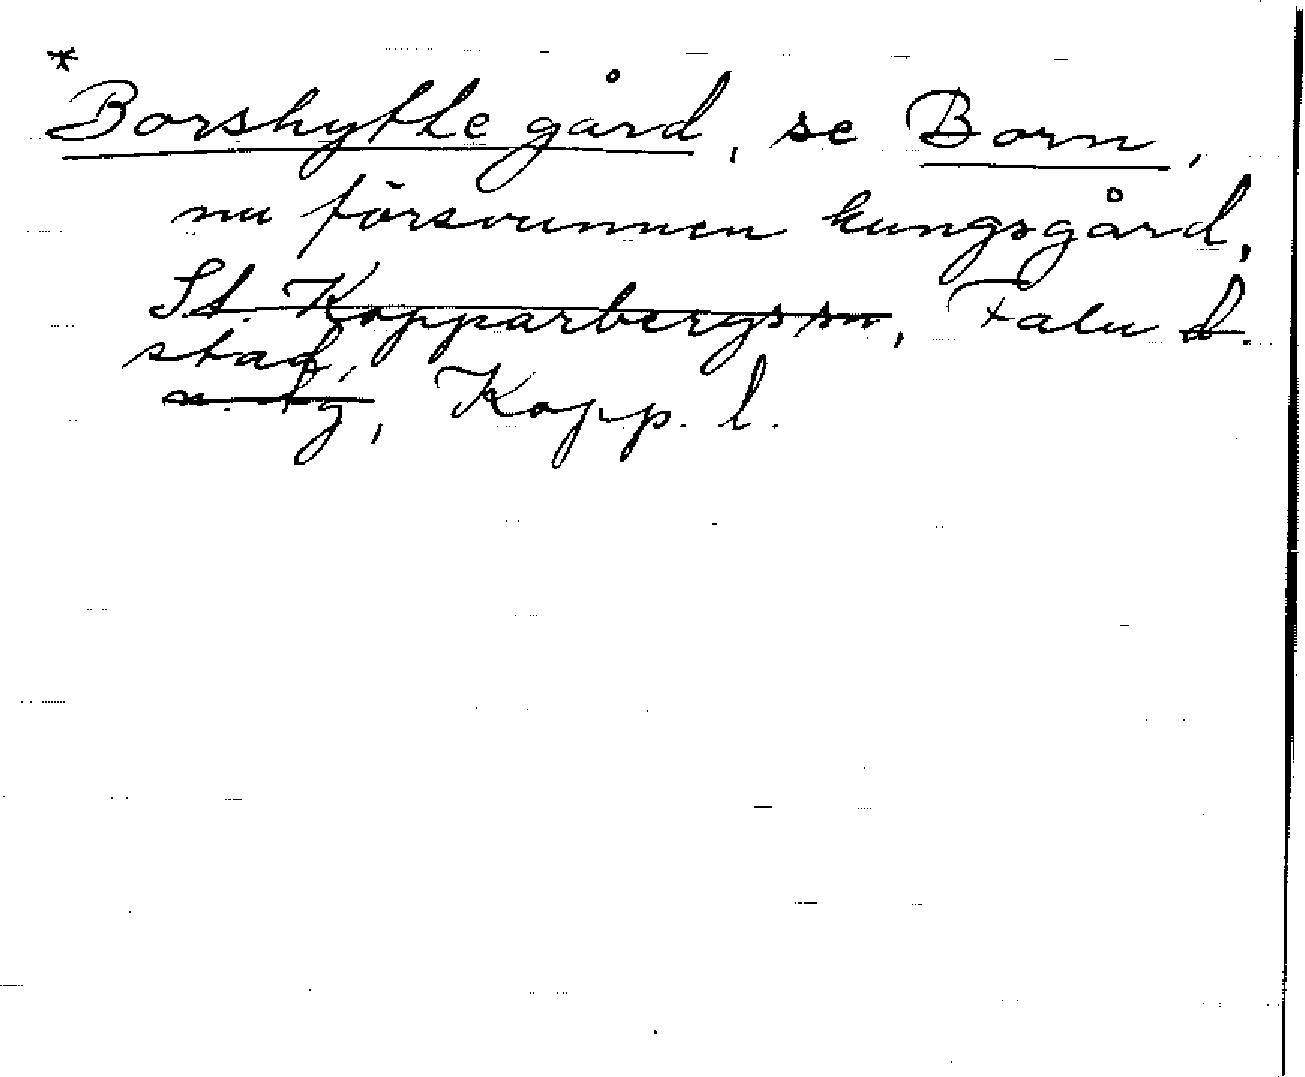 *
Borshytte gård, se Born,
nu försvunnen kungsgård,
St. Kopparbergs sn, Falu d.
stad,
n. fg, Kopp. l.